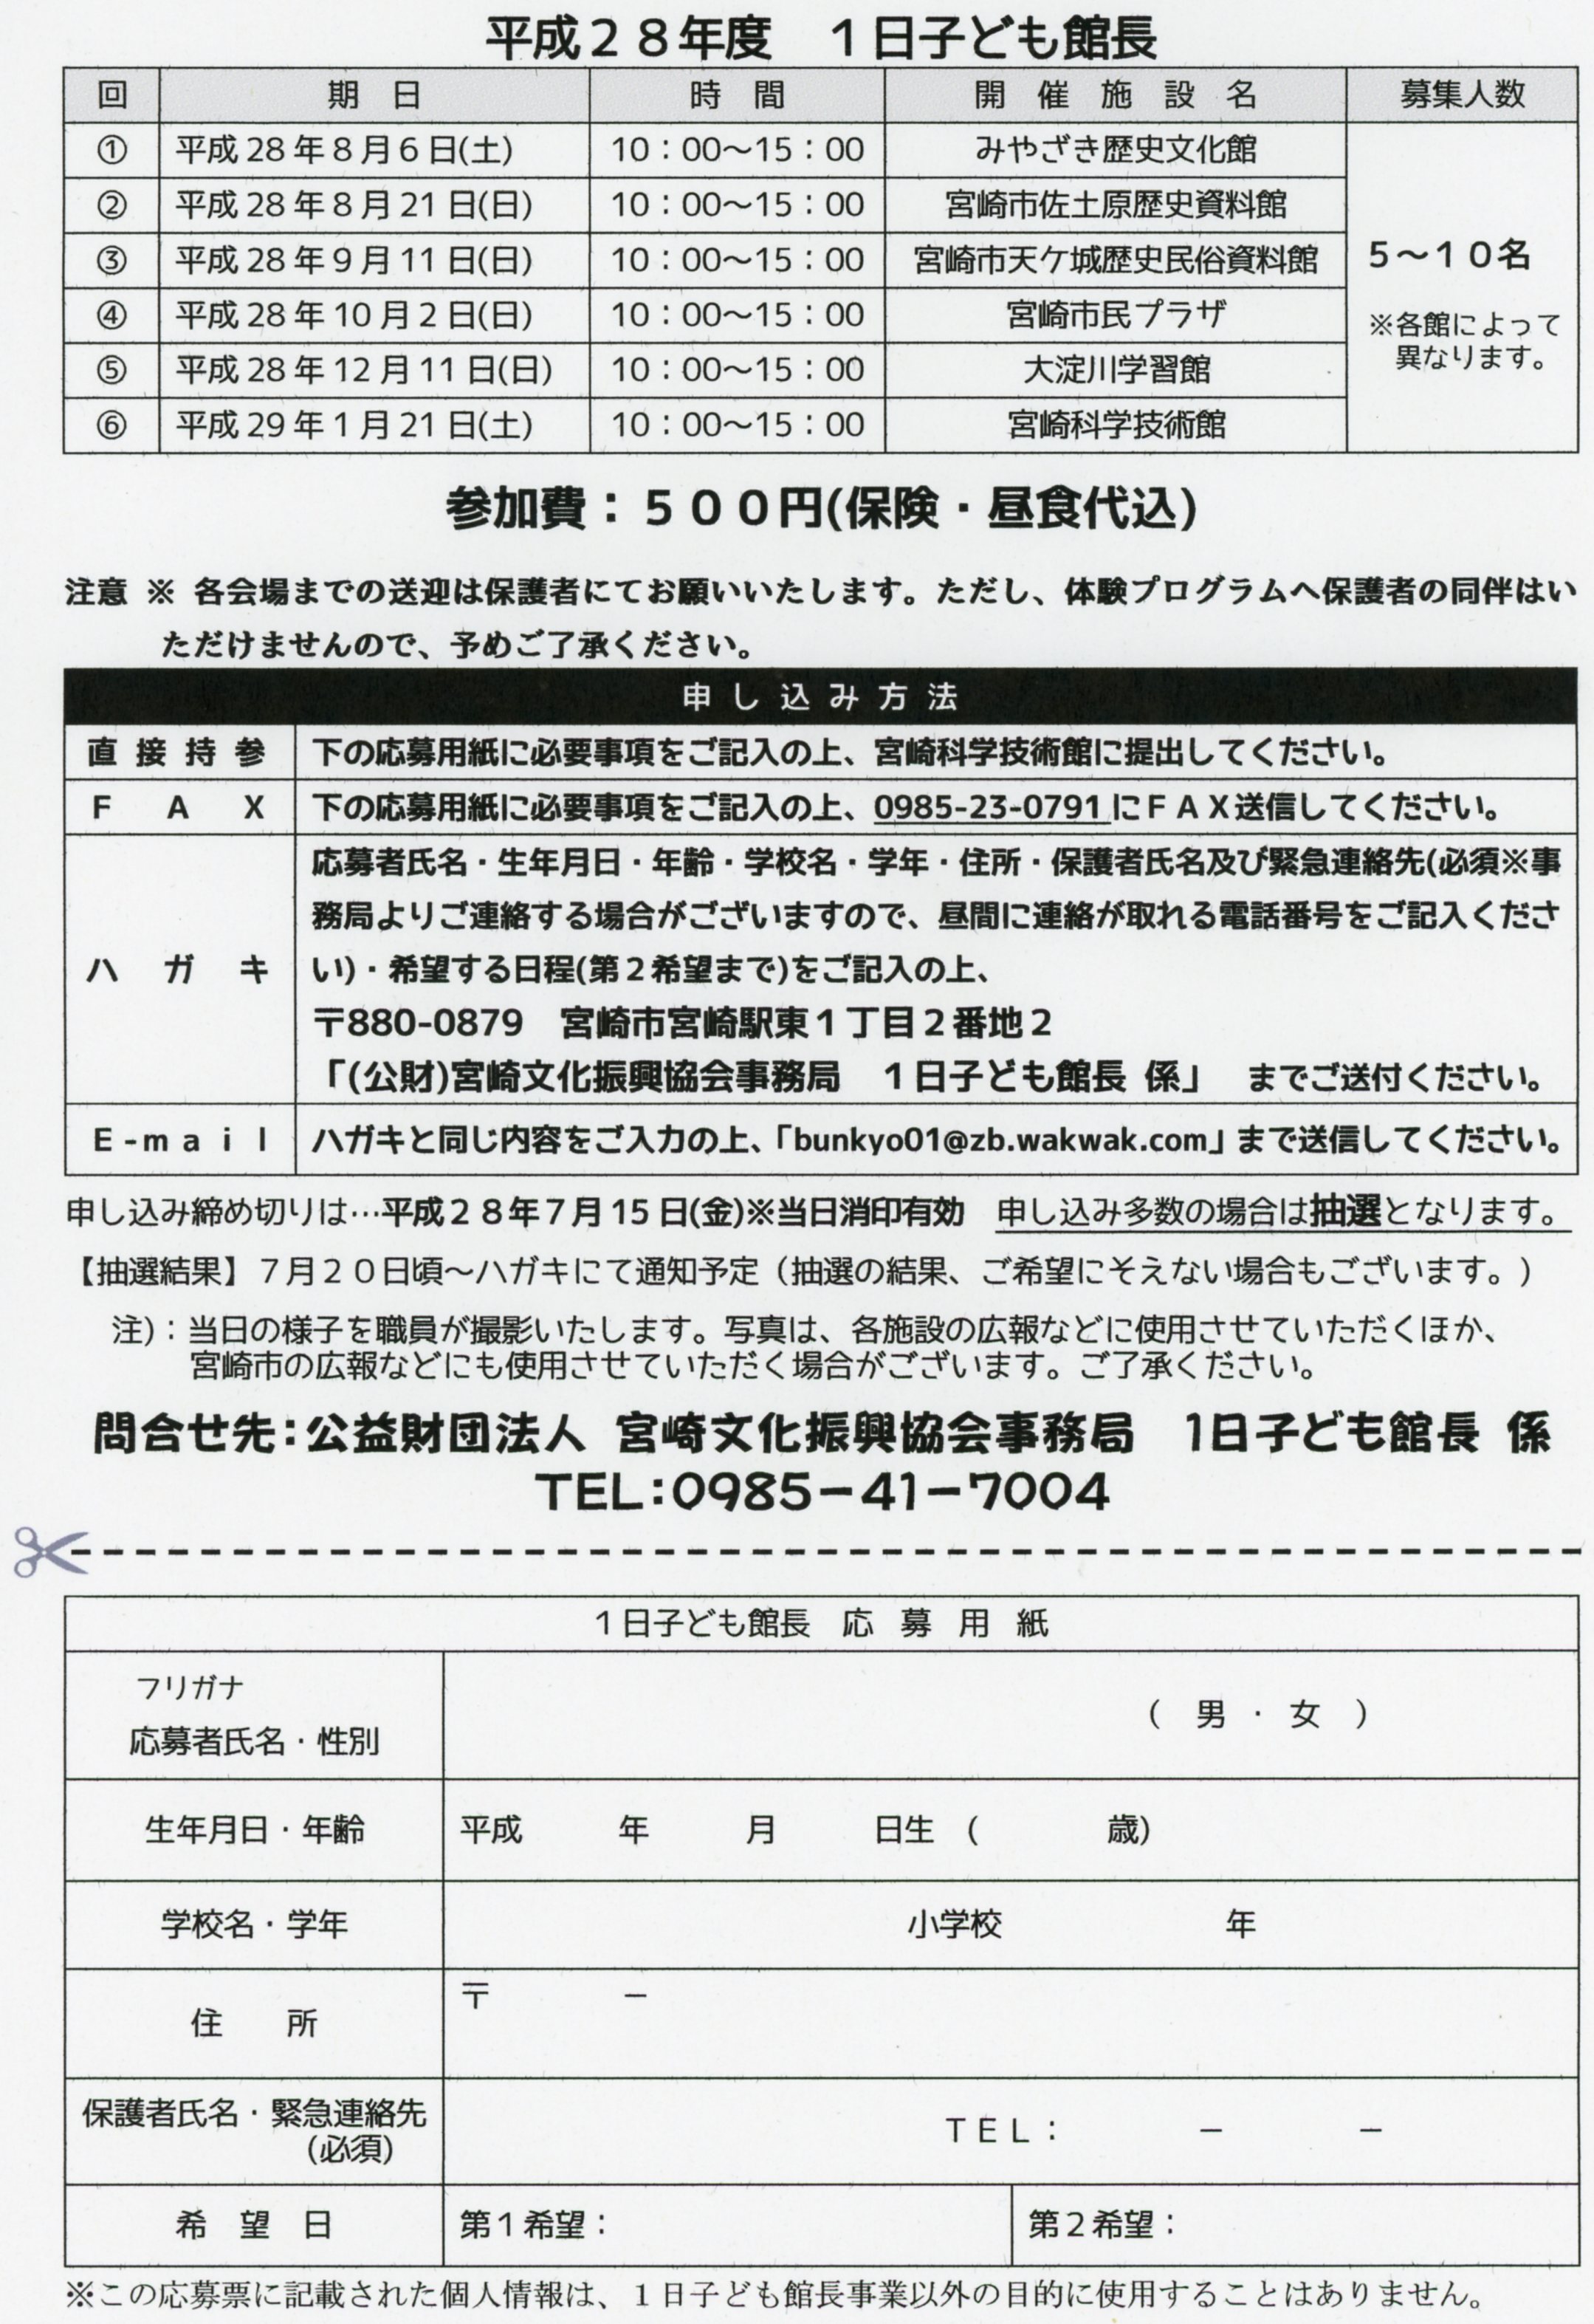 平成２８年度　１日子ども館長
回　期　日　時　間　開　催　施　設　名　募集人数
① 平成 28 年 8 月 6 日(土) 10：00～15：00 みやざき歴史文化館
② 平成 28 年 8 月 21 日(日) 10：00～15：00 宮崎市佐土原歴史資料館
③ 平成 28 年 9 月 11 日(日) 10：00～15：00 宮崎市天ケ城歴史民俗資料館
④ 平成 28 年 10 月 2 日(日) 10：00～15：00 宮崎市民プラザ
⑤ 平成 28 年 12 月 11 日(日) 10：00～15：00 大淀川学習館
⑥ 平成 29 年 1 月 21 日(土) 10：00～15：00 宮崎科学技術館
５～１０名
※各館によって
異なります。
参加費：５００円(保険・昼食代込)
注意 ※ 各会場までの送迎は保護者にてお願いいたします。ただし、体験プログラムへ保護者の同伴はい
ただけませんので、予めご了承ください。
申し込み方法
直接持参 下の応募用紙に必要事項をご記入の上、宮崎科学技術館に提出してください。
ＦＡＸ 下の応募用紙に必要事項をご記入の上、0985-23-0791 にＦＡＸ送信してください。
ハガキ
応募者氏名・生年月日・年齢・学校名・学年・住所・保護者氏名及び緊急連絡先(必須※事
務局よりご連絡する場合がございますので、昼間に連絡が取れる電話番号をご記入くださ
い)・希望する日程(第２希望まで)をご記入の上、
〒880-0879　宮崎市宮崎駅東１丁目２番地２
「(公財)宮崎文化振興協会事務局　１日子ども館長 係」　までご送付ください。
E-mail ハガキと同じ内容をご入力の上、「bunkyo01@zb.wakwak.com」まで送信してください。
申し込み締め切りは…平成２８年７月 15 日(金)※当日消印有効　申し込み多数の場合は抽選となります。
【抽選結果】７月２０日頃～ハガキにて通知予定（抽選の結果、ご希望にそえない場合もございます。）
注)：当日の様子を職員が撮影いたします。写真は、各施設の広報などに使用させていただくほか、
宮崎市の広報などにも使用させていただく場合がございます。ご了承ください。
問合せ先：公益財団法人 宮崎文化振興協会事務局　1日子ども館長 係
TEL：0985－41－7004
１日子ども館長　応　募　用　紙
フリガナ
応募者氏名・性別　（　男　・　女　）
生年月日・年齢　平成　年　月　日生　(　歳)
学校名・学年　小学校　年
〒　－
住　所
保護者氏名・緊急連絡先
(必須)
ＴＥＬ：　－　－
希　望　日　第１希望：　第２希望：
※この応募票に記載された個人情報は、１日子ども館長事業以外の目的に使用することはありません。